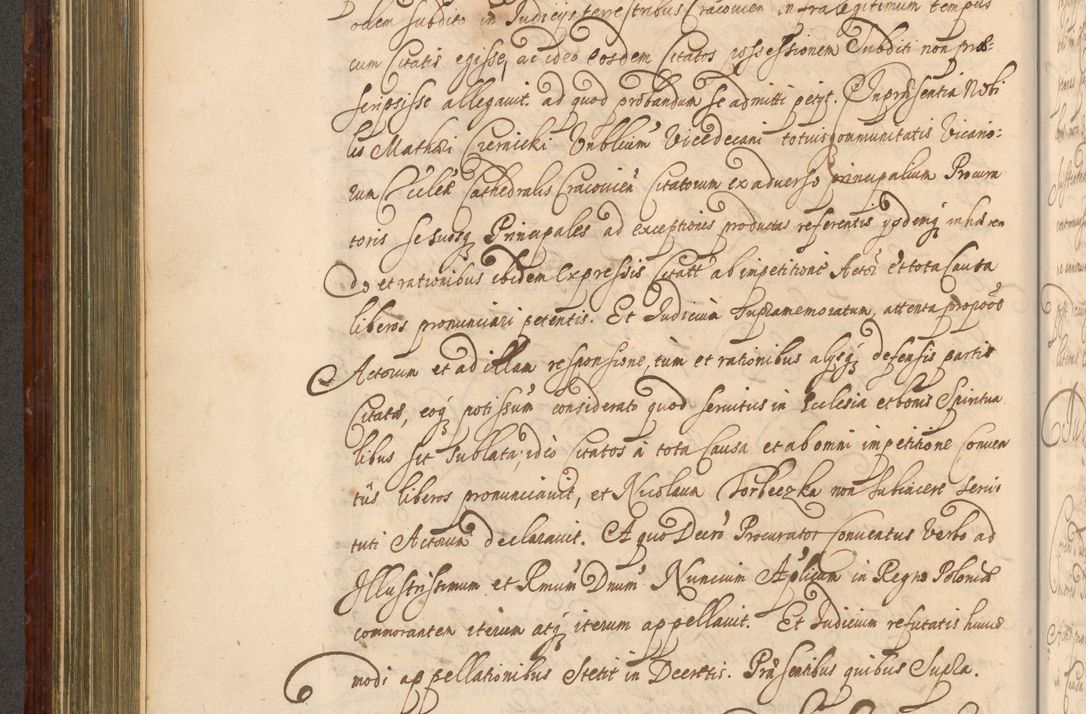 odem subdito in Judicijs terrestribus Cracovien infra legitimum tempus
cum Citatis egisse, ac ideo eosdem Citatos possessionem Subditi non prae-
scripsisse allegavit. ad quod probandum se admitti petyt. In praesentia Nobi
lis Mathaei Czernicki Vnblium Vicedecani totius communitatis Vicario:
rum Eccleae Cathedralis Cracovien Citatorum ex adverso principalium Procura
toris se suosq Principales ad exceptiones productas referentis ijsdemq inhaeren
do, et rationibus ibidem Expressis Citatt ab impetitione Actor et tota Causa
liberos pronunciari petentis. Et Judicium Supramemoratum, attenta proposite
Actorum et ad illam responsione, tum et rationibus alijsq defensis partis
Citatae, eoq potissum considerato quod servitus in Ecclesia et bonis Spiritua
libus sit Sublata, ideo Citatos à tota Causa et ab omni impetitione Conven
tus liberos pronunciavit, et Nicolaum Torbeczka non subiacere servi-
tuti Actorum declaravit. A quo Decro Procurator Conventus Verbo ad
Illustrissimum et Rmum Dnum Nuncium Aplicum in Regno Poloniae
commorantem iterum atq iterum appellavit. Et Judicium refutatis huius
modi appellationibus Stetit in Decretis. Praesentibus quibus Supra.